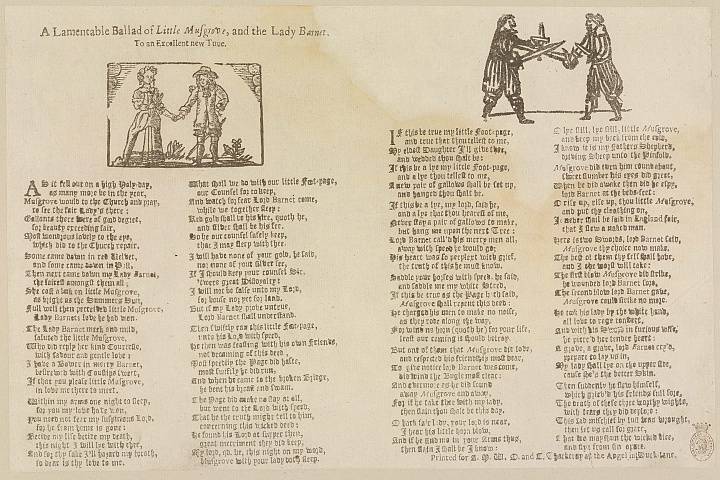 A Lamentable Ballad of Little Musgrove, and the Lady Barnet.
To an Excellent new Tune.
AS it fell out on a high Holy-day,
as many more be in the year,
Musgrove would to the Church and pray,
to see the fair Lady's there:
Gallants there were of good degree,
for beauty exceeding fair,
Most wondrous lovely to the eye,
which did to the Church repair.
Some came down in red Velvet,
and some came down in Pall,
Then next came down my Lady Barnet,
the fairest amongst them all:
She cast a look on little Musgrove,
as bright as the Summers Sun,
Full well then perceived little Musgrove,
Lady Barnets love he had won.
The Lady Barnet meek and mild,
saluted this little Musgrove,
Who did reply her kind Courtesie,
with favour and gentle love:
I have a Bower in merry Barnet,
bestrew'd with Cowslips sweet,
If that you please little Musgrove,
in love me there to meet.
Within my arms one night to sleep,
for you my love hath won,
You need not fear my suspicious Lord,
for he from home is gone:
Betide my life betide my death,
this night I will lie with thee,
And for thy sake I'll hazard my breath,
so dear is thy love to me.
What shall we do with our little Foot-page,
our Counsel for to keep,
And watch for fear Lord Barnet come,
while we together sleep:
Red gold shall be his hire, quoth he,
and silver shall be his fee,
So he our counsel safely keep,
that I may sleep with thee.
I will have none of your gold, he said,
nor none of your silver fee,
If I should keep your counsel Sir,
'twere great Disloyalty:
I will not be false unto my Lord,
for house nor yet for land,
But if my Lady prove untrue,
Lord Barnet shall understand.
Then swiftly ran this little Foot-page,
unto his Lord with speed,
He then was feasting with his own Friends,
not dreaming of this deed,
Most speedily the Page did haste,
most swiftly he did run,
And when he came to the broken Bridge,
he bent his breast and swum.
The Page did make no stay at all,
but went to the Lord with speed,
That he the truth might tell to him,
concerning this wicked deed:
He found his Lord at supper then,
great merriment they did keep,
My Lord, qd. he, this night on my word,
Musgrove with your Lady doth sleep.
IF this be true my little Foot-page,
and true that thou tellest to me,
My eldest Daughter I'll give thee,
and wedded thou shalt be:
If this be a lye my little Foot-page,
and a lye thou tellest to me,
A new pair of gallows shall be set up,
and hanged thou shalt be.
If this be a lye, my lord, said he,
and a lye that thou hearest of me,
Never stay a pair of gallows to make,
but hang me upon the next Tree:
Lord Barnet call'd his merry men all,
away with speed he would go;
His heart was so perplext with grief,
the truth of this he must know.
Saddle your horses with speed, he said,
and saddle me my white Steed,
If this be true as the Page hath said,
Musgrove shall repent this deed
He charged his men to make no noise,
as they rode along the way,
For winds no horn (quoth he) for your life,
lest our coming it should betray.
But one of them that Musgrove did love,
and respected his friendship most dear,
To give notice Lord Barnet was come,
did wind the Bugle most clear:
And evermore as he did sound
away Musgrove and away,
For if he take thee with my lady,
then slain thou shalt be this day.
O hark fair lady, your lord is near,
I hear his little horn blow,
And if he find me in your Arms thus,
then slain I shall be I know:
O lye still, lye still, little Musgrove,
and keep my back from the cold,
I know it is my Fathers Shepherd,
driving Sheep unto the Pinfold.
Musgrove did turn him round about,
sweet slumber his eyes did greet,
When he did awake then did he espy,
lord Barnet at the beds-feet:
O rise up, rise up, thou little Musgrove,
and put thy cloathing on,
It never shall be said in England fair,
that I slew a naked man.
Here is two Swords, lord Barnet said,
Musgrove thy choice now make,
The best of them thy self shall have,
and I the worst will take:
The first blow Musgrove did strike,
he wounded lord Barnet sore,
The second blow lord Barnet gave,
Musgrove could strike no more.
He took his lady by the white hand,
all love to rage convert,
And with his Sword in furious wise,
he pierc'd her tender heart:
A grave, a grave, lord Barnet cry'd,
prepare to lay us in,
My lady shall lye on the upper side,
cause she's the better Skin.
Then suddenly he slew himself,
which griev'd his friends full sore,
The death of these three worthy wights,
with tears they did deplore:
This sad mischief by lust was wrought,
then let us call for grace,
That we may shun the wicked vice,
and flye from sin apace.
Printed for A. M. W. O. and T. Thackeray at the Angel in Duck Lane.